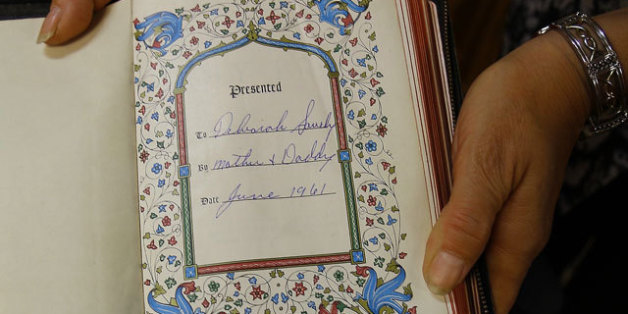 Presented
To Debraich
By Mother & Daddy
Date June 1961